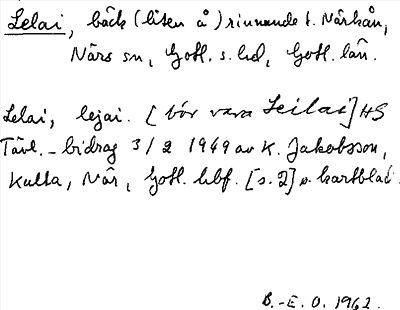 Lelai, bäck (liten å) rinnande t. Närkån,
Närs sn, Gotl. s. hd, Gotl. län.
Lelai, lejai. [bör vara Leilai] HS
Tävl.-bidrag 3/2 1949 av K. Jakobsson,
Kulla, När, Gotl. hbf. [s. 2] o. kartblad.
B.-E. O. 1962.